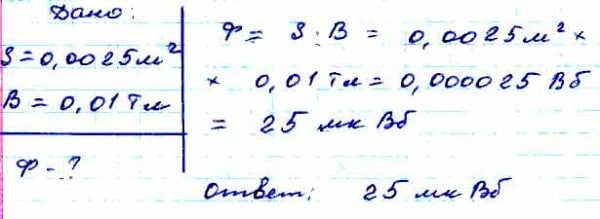 Дано:
S = 0,0025 м²
B = 0,01 Тл
Ф - ?
Ф = S · B = 0,0025 м² ×
× 0,01 Тл = 0,000025 Вб
= 25 мк Вб
Ответ: 25 мк Вб